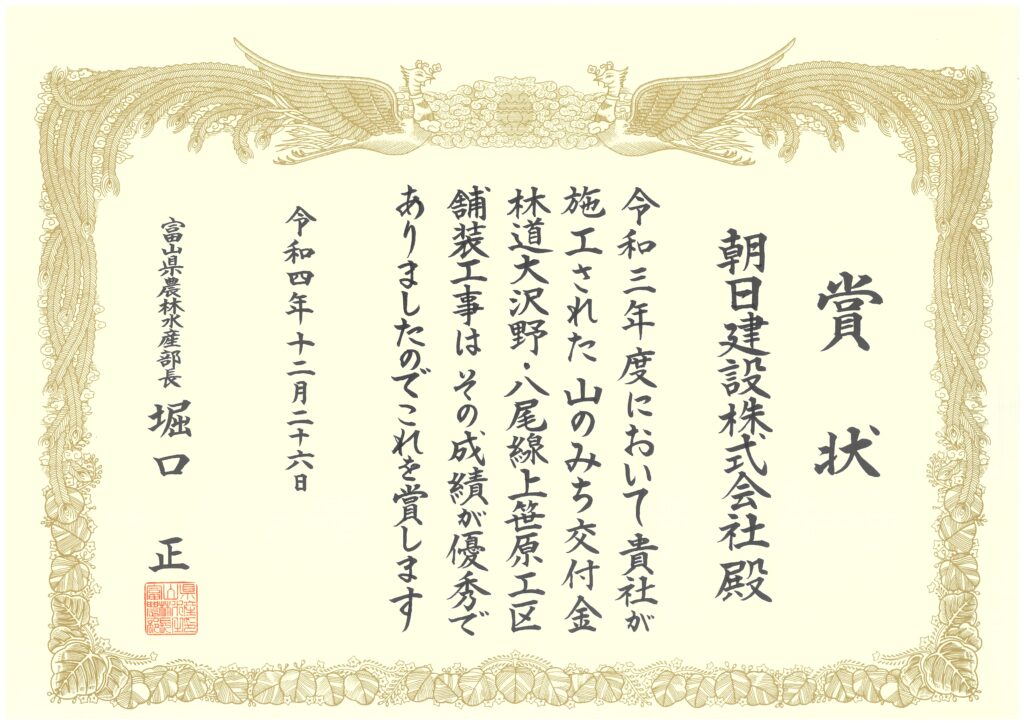 賞状
朝日建設株式会社殿
令和三年度において貴社が
施工された山のみち交付金
林道大沢野・八尾線上笹原工区
舗装工事はその成績が優秀で
ありましたのでこれを賞します
令和四年十二月二十六日
富山県農林水産部長 堀口 正